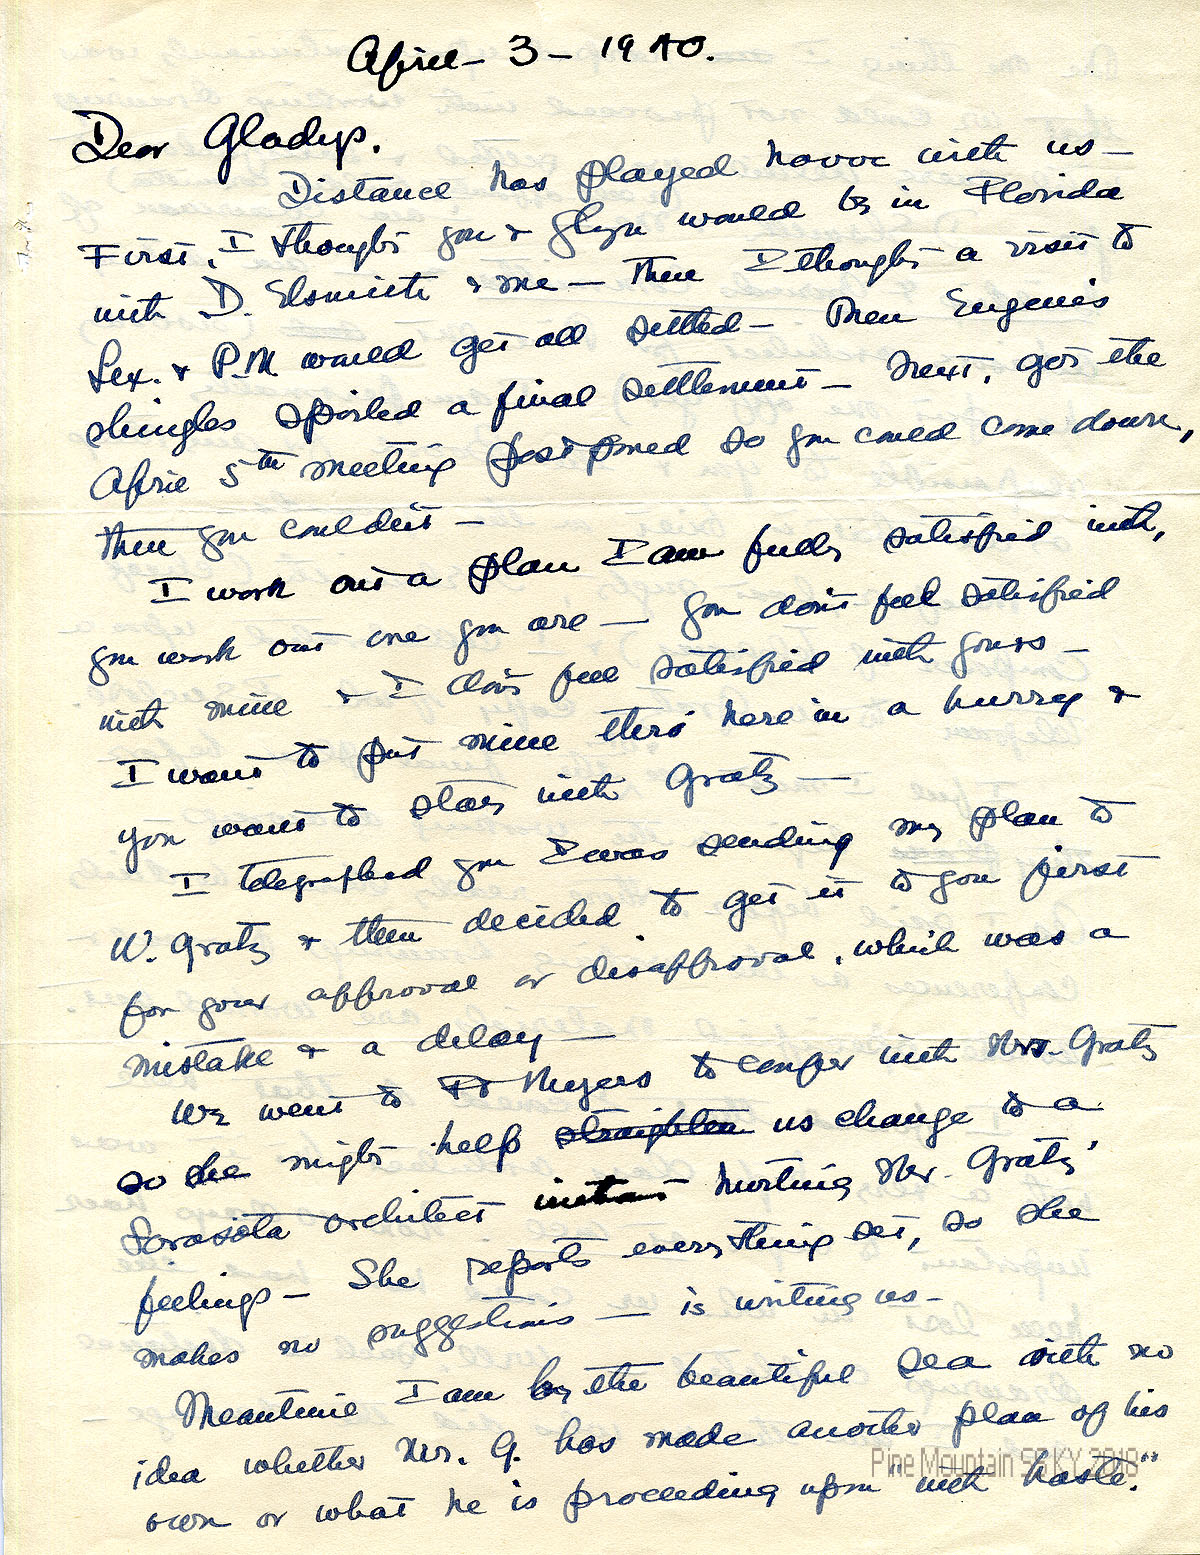 April - 3 - 1940.
Dear Gladys.
Distance has played havoc with us -
First, I thought you & Glyn would be in Florida
with D. Elsmith & me - then I thought a visit to
Lex. & P.M. would get all settled - Then Eugenia's
shingles spoiled a final settlement - Next, got the
April 5th meeting postponed so you could come down,
then you couldn't -
I work out a plan I am fully satisfied with,
you work out one you are - you don't feel satisfied
with mine & I don't feel satisfied with yours -
I want to put mine thro' here in a hurry &
you want to stay with Gratz -
I telegraphed you I was sending my plan to
W. Gratz & then decided to get it to you first
for your approval or disapproval, which was a
mistake & a delay -
We went to Ft Myers to confer with Mrs. Gratz
so she might help straighten us change to a
Sarasota architect without hurting Mr. Gratz'
feelings - She reports everything set, so she
makes no suggestions - is writing us -
Meantime I am by the beautiful sea with no
idea whether Mr. G. has made another plan of his
own or what he is proceeding upon "with haste."
Pine Mountain SS KY 2018